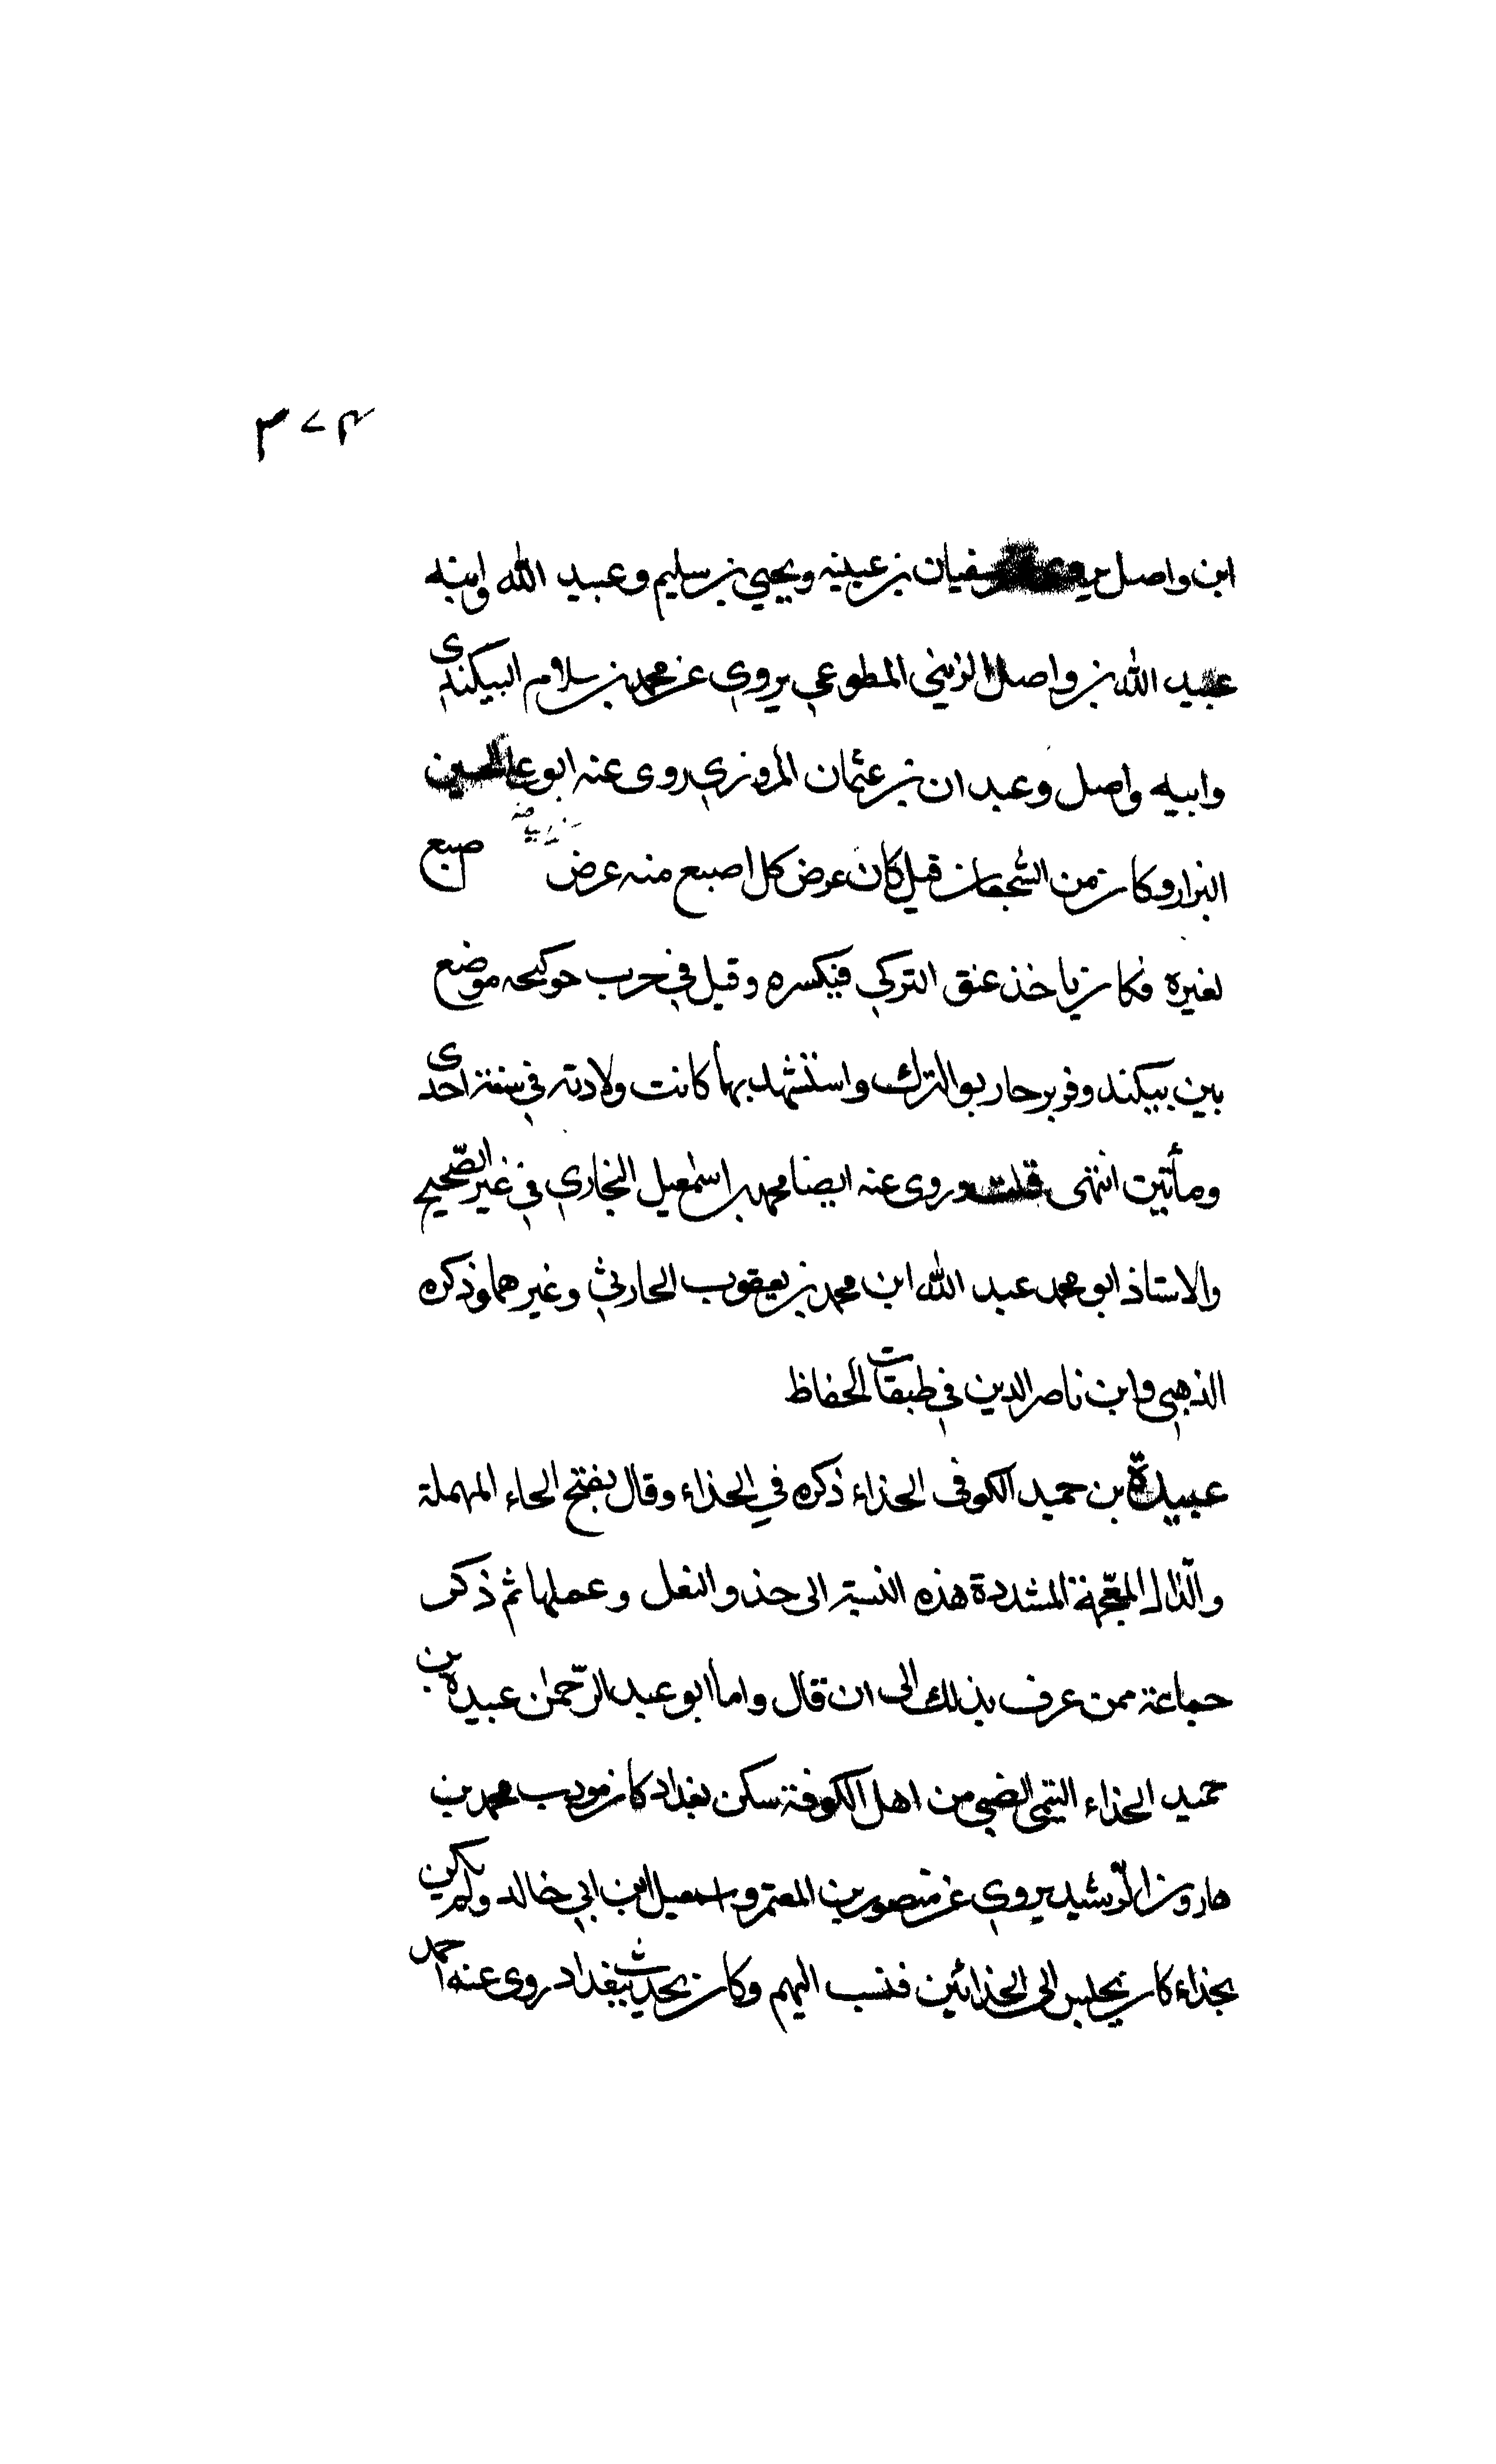 ٣٧٤
ابن واصل يروى سفيان بن عيينه ويحيي بن سليم وعبيد الله وابنه
عبيد الله بن واصل الزيني المطوعي يروي عن محمد بن سلام البيكندى
وابيه واصل وعبدان بن عثمان المروزي روى عنه ابو الحسين
البزار وكان من الشجعان قيل كان عرض كل اصبع منه عرض صبع
لغيره فكان ياخذ عنق التركي فيكسره وقيل في حرب موضع
بين بيكند وفربر حاربوا الترك واستشهد بها كانت ولادته في سنة احدى
ومأتين انتهى قلت وروى عنه ايضا محمد بن اسمعيل البخاري في غير الصّحيح
والاستاذ ابو محمد عبد الله ابن محمد بن يعقوب الحارثي وغيرهما وذكره
الذهبي وابن ناصر الدين في طبقات الحفاظ
عبيدة بن حميد الكوفى الحذاء ذكره في الحذاء وقال بفتح الحاء المهملة
والّذال المعجمة المشددة هذه النسبة الى حذو النعل وعملها ثم ذكر
جماعة ممن عرف بذلك الى ان قال واما ابو عبد الرّحمن عبيدة بن
حميد الحذاء التيمى الضبى من اهل الكوفة سكن بغداد كان مودب محمد بن
هارون الرّشيد يروي عن منصور بن المعتمر واسمعيل ابن ابي خالد ولم يكن
بحذاء كان يجلس الى الحذائين فنسب اليهم وكان يحدث ببغداد روى عنه احمد